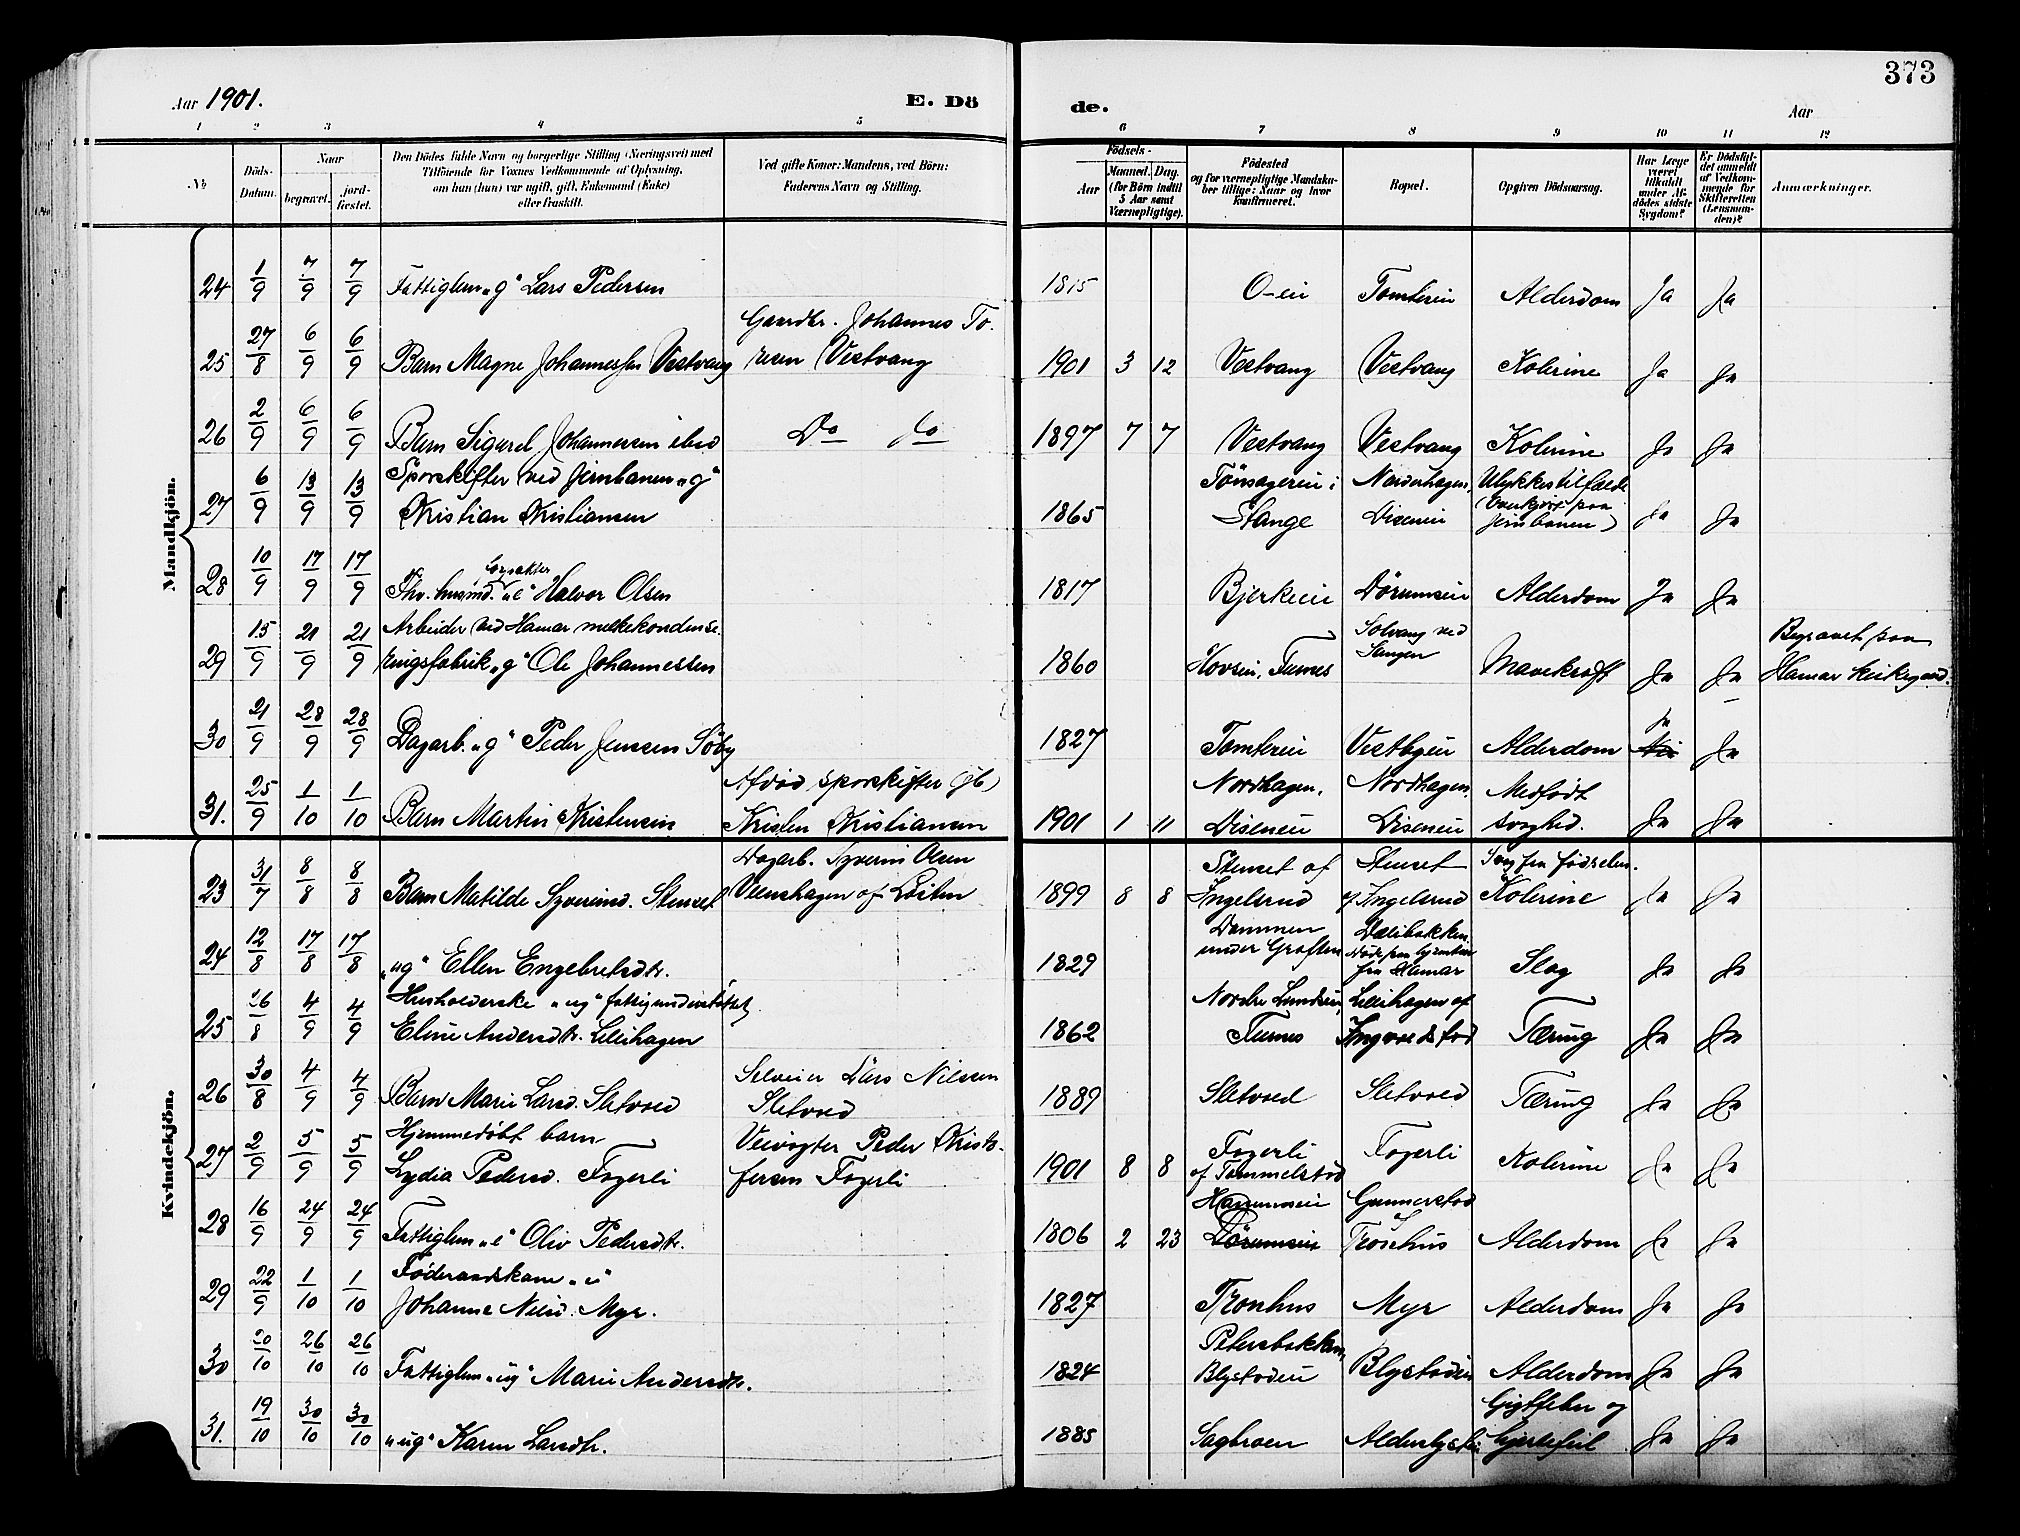 373
Aar 1901.
E. Dö
de.
Aar
1 2 3 4 5 6 7 8 9 10 11 12
№
Döds-Datum.
Naar
begravet.
jord-fæstet.
Den Dödes fulde Navn og borgerlige Stilling (Næringsvei) med
Tilföiende for Voxnes Vedkommende af Oplysning,
om han (hun) var ugift, gift, Enkemand (Enke)
eller fraskilt.
Ved gifte Koner: Mandens, ved Börn:
Faderens Navn og Stilling.
Födsels-
Aar
Maaned. Dag.
(for Börn indtil
5 Aar samt
Værnepligtige).
Födested
og for værnepligtige Mandska-
ber tillige: Naar og hvor
konfirmeret.
Bopæl.
Opgiven Dödsaarsag.
Har Læge
været
tilkaldt
under Af-
dödes sidste
Sygdom?
Er Dödsfal-
det anmeldt
af Vedkom-
mende for
Skifteretten
(Lensman-
den)?
Anmærkninger.
Mandkjön.
24 1/9 7/9 7/9 Fattiglem „g“ Lars Pedersen 1815 O-ein Tomterein Alderdom Ja Ja
25 27/8 6/9 6/9 Barn Magne Johannessen Vestvang
Gaardbr. Johannes To-
resen Vestvang
1901 3 12 Vestvang Vestvang Kolerine Ja Ja
26 2/9 6/9 6/9 Barn Sigurd Johannessen ibid Do do 1897 7 7 Vestvang Vestvang Kolerine Ja Ja
27 6/9 13/9 13/9 Sporskifter ved Jernbanen „g“
Kristian Kristiansen
1865
Tönsagerein i
Stange
Nordhagen,
Disenein
Ulykkestilfælde
(overkjört paa
Jernbanen)
Ja Ja
28 10/9 17/9 17/9 Fhv. husmd. „e“ Halvor Olsen 1817 Bjerkein Dörumsein Alderdom Ja Ja
29 15/9 21/9 21/9 Arbeider ved Hamar melkekondense-
ringsfabrik „g“ Ole Johannessen
1860 Hovsein, Furnes
Solvang ved
Stangen
Mavekræft Ja Ja
Begravet paa
Hamar kirkegaard.
30 21/9 28/9 28/9 Dagarb. „g“ Peder Jensen Söby 1827 Tomterein Vestbyein Alderdom Ja Nei Ja
31. 25/9 1/10 1/10 Barn Martin Kristensen
Afdöd sporskifter (Jb)
Kristen Kristiansen
1901 1 11
Nordhagen,
Disenein
Nordhagen,
Disenein
Medfödt
svaghed.
Ja Ja
Kvindekjön.
23 31/7 8/8 8/8 Barn Matilde Syverind. Stenset
Dagarb. Syverin Olsen
Veenshagen af Löiten
1899 8 8
Stenset af
Ingelsrud
Stenset
af Ingelsrud
Svag fra fødselen.
Kolerine
Ja Ja
24 12/8 17/8 17/8 „ug“ Ellen Engebretsdtr. 1829
Dammen
under Grafton
Dælibakken.
Död paa hjemtur
fra Hamar
Slag Ja Ja
25 26/8 4/9 4/9 Husholderske „ug“ fattigunderstöttet,
Eline Andersdtr. Lilleihagen
1862
Nordre Lundsein,
Furnes
Lilleihagen af
Ingvoldstad
Tæring Ja Ja
26 30/8 4/9 4/9 Barn Marie Larsd. Sletvold
Selveier Lars Nilsen
Sletvold
1889 Sletvold Sletvold Tæring Ja Ja
27 2/9 5/9 5/9 Hjemmedöbt barn
Lydia Pedersd. Fagerli
Veivogter Peder Kristo-
fersen Fagerli
1901 8 8
Fagerli
af Tommelstad
Fagerli Kolerine Ja Ja
28 16/9 24/9 24/9 Fattiglem „e“ Oliv Pedersdtr. 1806 2 23
Hammein
Dörumsein
Gunnerstad
Tröshus
Alderdom Ja Ja
29 22/9 1/10 1/10 Föderaadskone „e“
Johanne Nilsd. Myr.
1827 Tronhus Myr Alderdom Ja Ja
30 20/10 26/10 26/10 Fattiglem „ug“ Marie Andersdtr. 1824
Petersbakken,
Blystadein
Blystadein Alderdom Ja Ja
31. 19/10 30/10 30/10 „ug“ Karen Larsdtr. 1885 Sagbroen
Gigtfeber og
hjertefeil
Ja Ja